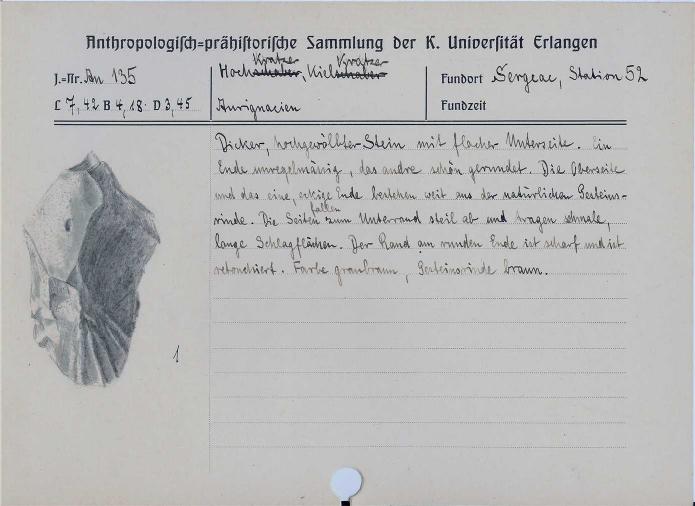 Anthropologisch-prähistorische Sammlung der K. Universität Erlangen
J.-Nr. An 135
Kratzer Kratzer
Hochschaber, Kielschaber
Fundort Sergeac, Station 52
L 7,42 B 4,18 D 3,45
Aurignacien
Fundzeit
Dicker, hochgewölbter Stein mit flacher Unterseite. Ein
Ende unregelmässig, das andre schön gerundet. Die Oberseite
und das eine, eckige Ende bestehen weit aus der natürlichen Gesteins-
fallen
rinde. Die Seiten zum Unterrand steil ab und tragen schmale,
lange Schlagflächen. Der Rand am runden Ende ist scharf und ist
retouchiert. Farbe graubraun, Gesteinsrinde braun.
1